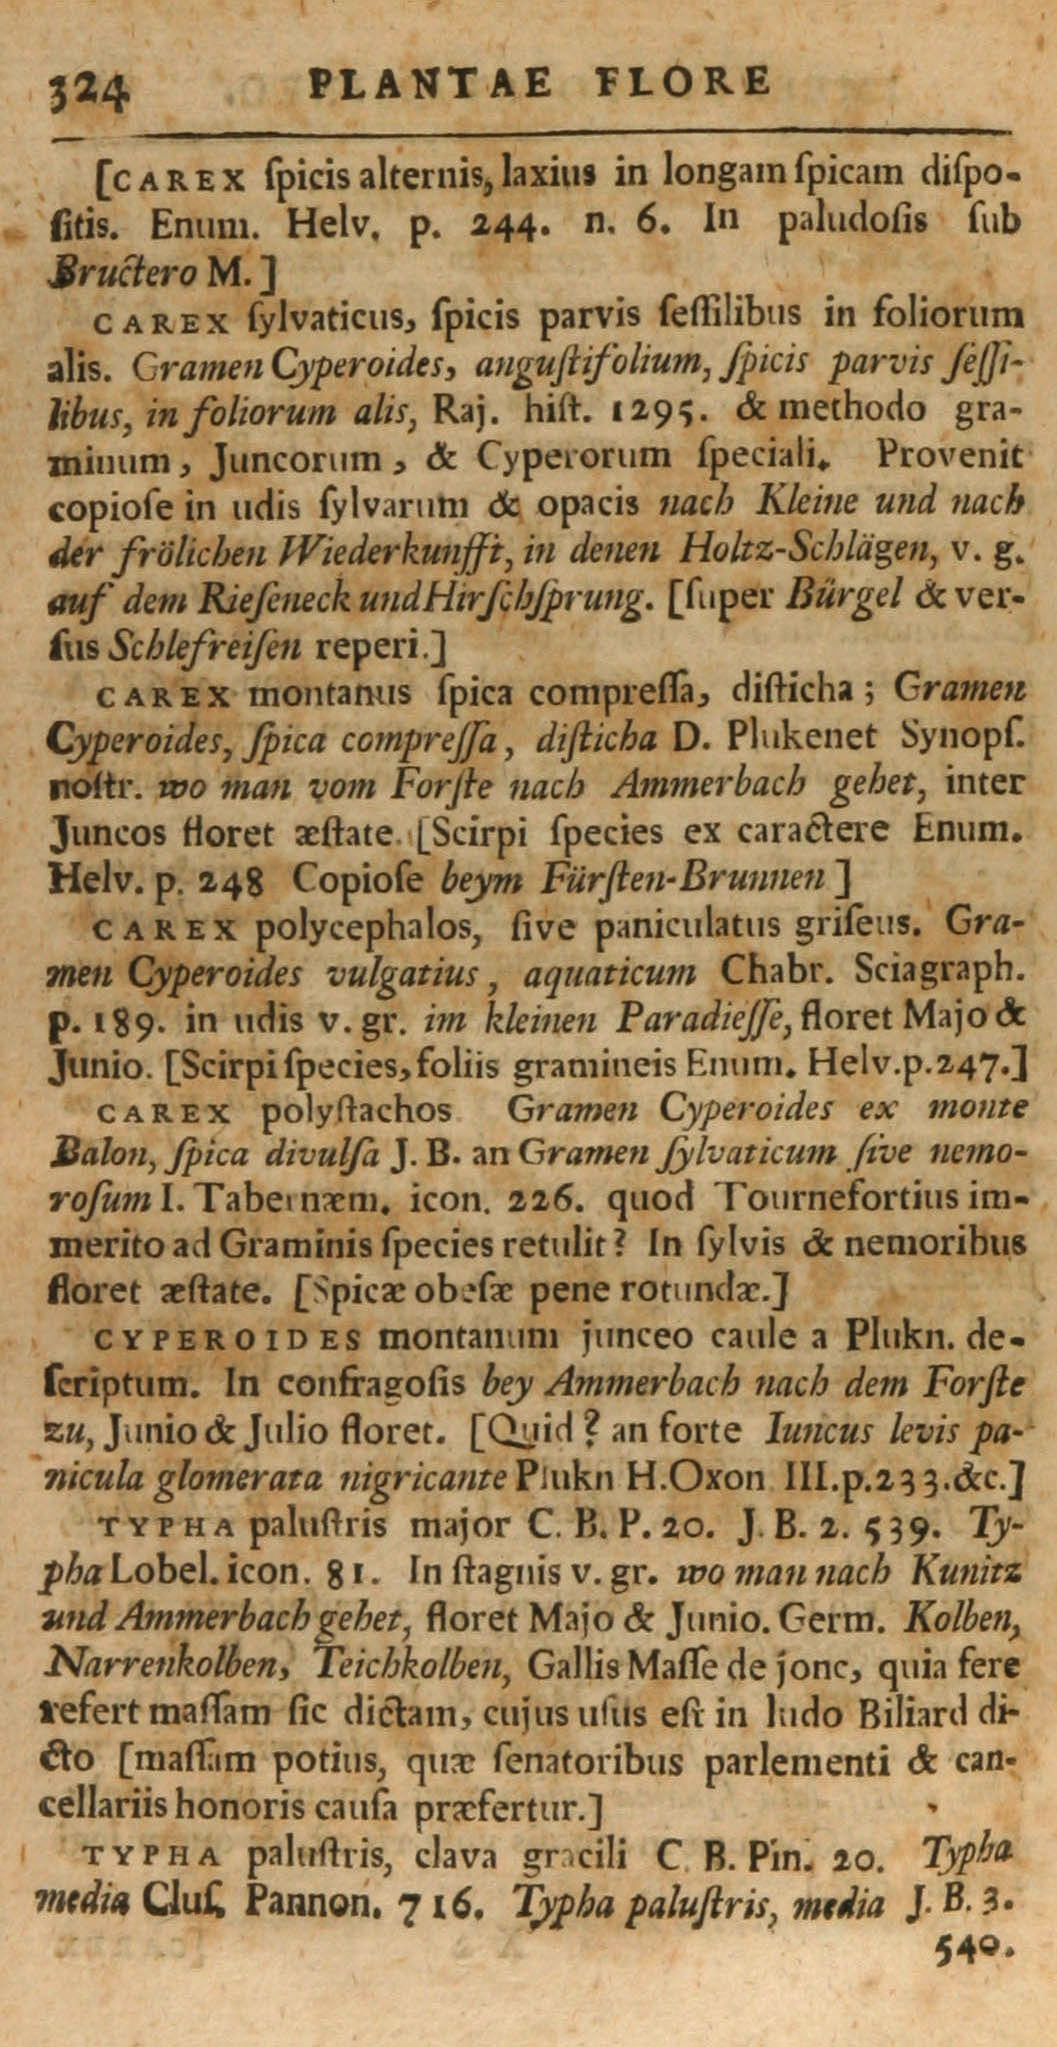 324 PLANTAE FLORE
[CAREX ſpicis alternis, laxius in longam ſpicam diſpo-
ſitis. Enum. Helv. p. 244. n. 6. In paludoſis ſub
Bructero M.]
CAREX ſylvaticus, ſpicis parvis ſeſſilibus in foliorum
alis. Gramen Cyperoides, anguſtifolium, ſpicis parvis ſeſſi-
libus, in foliorum alis, Raj. hiſt. 1295. & methodo gra-
minum, Juncorum, & Cyperorum ſpeciali. Provenit
copioſe in udis ſylvarum & opacis nach Kleine und nach
der frölichen Wiederkunfft, in denen Holtz-Schlägen, v. g.
auf dem Rieſeneck und Hirſchſprung. [ſuper Bürgel & ver-
ſus Schlefreiſen reperi.]
CAREX montanus ſpica compreſſa, diſticha; Gramen
Cyperoides, ſpica compreſſa, diſticha D. Plukenet Synopſ.
noſtr. wo man vom Forſte nach Ammerbach gehet, inter
Juncos floret æſtate. [Scirpi ſpecies ex caractere Enum.
Helv. p. 248 Copioſe beym Fürſten-Brunnen]
CAREX polycephalos, ſive paniculatus griſeus. Gra-
men Cyperoides vulgatius, aquaticum Chabr. Sciagraph.
p. 189. in udis v. gr. im kleinen Paradieſſe, floret Majo &
Junio. [Scirpi ſpecies, foliis gramineis Enum. Helv. p. 247.]
CAREX polyſtachos Gramen Cyperoides ex monte
Balon, ſpica divulſa J. B. an Gramen ſylvaticum ſive nemo-
roſum I. Tabernæm. icon. 226. quod Tournefortius im-
merito ad Graminis ſpecies retulit? In ſylvis & nemoribus
floret æſtate. [Spicæ obeſæ pene rotundæ.]
CYPEROIDES montanum junceo caule a Plukn. de-
ſcriptum. In confragoſis bey Ammerbach nach dem Forſte
zu, Junio & Julio floret. [Quid? an forte Iuncus levis pa-
nicula glomerata nigricante Plukn H. Oxon III. p. 233. &c.]
TYPHA paluſtris major C. B. P. 20. J. B. 2. 539. Ty-
pha Lobel. icon. 81. In ſtagnis v. gr. wo man nach Kunitz
und Ammerbach gehet, floret Majo & Junio. Germ. Kolben,
Narrenkolben, Teichkolben, Gallis Maſſe de jonc, quia fere
refert maſſam ſic dictam, cujus uſus eſt in ludo Biliard di-
cto [maſſam potius, quæ ſenatoribus parlementi & can-
cellariis honoris cauſa præfertur.]
TYPHA paluſtris, clava gracili C. B. Pin. 20. Typha
media Cluſ. Pannon. 716. Typha paluſtris, media J. B. 3.
540.